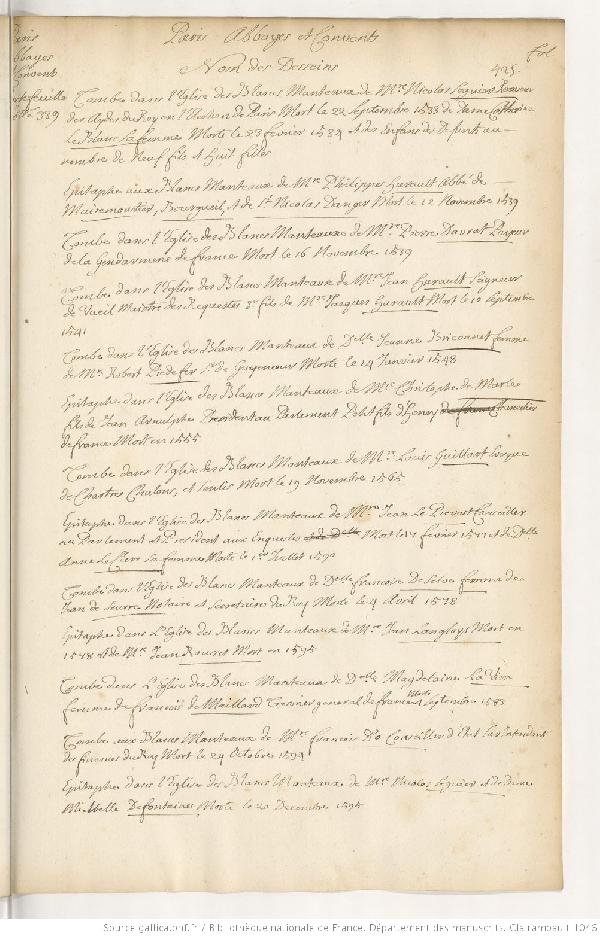 Paris Abbayes et Convents
Nom des Desseins
fol
425.
Paris
Abbayes
Convent
portefeuille
389
Tombe dans l'Eglise des Blancs Manteaux de Mre Nicolas Seguier Receveur
des Aydes du Roy en l'Election de Paris Mort le 22 Septembre 1533 de Dame Catherine
le Blanc sa femme Morte le 23 fevrier 1534 et des Enfans Defunts au
nombre de Neuf fils et huit filles
Epitaphe aux Blancs Manteaux de Mre Philippes Hurault Abbé de
Mairemoustier, Bourgueil, et de St Nicolas Dangers Mort le 12 Novembre 1539
Tombe dans l'Eglise des Blancs Manteaux de Mre Pierre Dauvat Payeur
de la Gendarmerie de france Mort le 16 Novembre 1519
Tombe dans l'Eglise des Blancs Manteaux de Mre Jean Hurault Seigneur
de Vueil Maistre des Requestes 3e fils de Mre Jacques Hurault Mort le 10 Septembre
1541
Tombe dans l'Eglise des Blancs Manteaux de Delle Jeanne Briconnet femme
de Mre Robert Piedefer Sr de Guyencour Morte le 14 Janvier 1548
Epitaphe dans l'Eglise des Blancs Manteaux de Mre Christophe de Marle
fils de Jean Arnulphe President au Parlement Petit fils d'Henry Chancelier
de france Mort en 1555
Tombe dans l'Eglise des Blancs Manteaux de Mre Louis Guillart Evesque
de Chartres Chalons, et Senlis Mort le 19 Novembre 1565
Epitaphe dans l'Eglise des Blancs Manteaux de Mre Jean Le Prevost Conseiller
au Parlement et President aux Enquestes Mort le fevrier et de Delle
Anne Le Clerc sa femme Morte le 1er Juillet 1570
Tombe dans l'Eglise des Blancs Manteaux de Delle francoise De Selve femme de
Jean de Seurre Notaire et Secretaire du Roy Morte le 4 Avril 1578
Epitaphe dans L'Eglise des Blancs Manteaux de Mre Jean Langloys Mort en
1578 et de Mre Jean Rouret Mort en 1595
Tombe dans L'Eglise des Blancs Manteaux de Delle Magdelaine
femme de francois de Maillard Tresorier general de france Morte Septembre 1583
Tombe aux Blancs Manteaux de Mre francois D'O Conseiller d'Etat Surintendant
des finances du Roy Mort le 24 Octobre 1594
Epitaphe dans l'Eglise des Blancs Manteaux de Mre Nicolas Seguier et de Dame
Michelle De fontaines Morte le 20 Decembre 1595
Source gallica.bnf.fr / Bibliothèque nationale de France. Département des manuscrits. Clairambault 1046